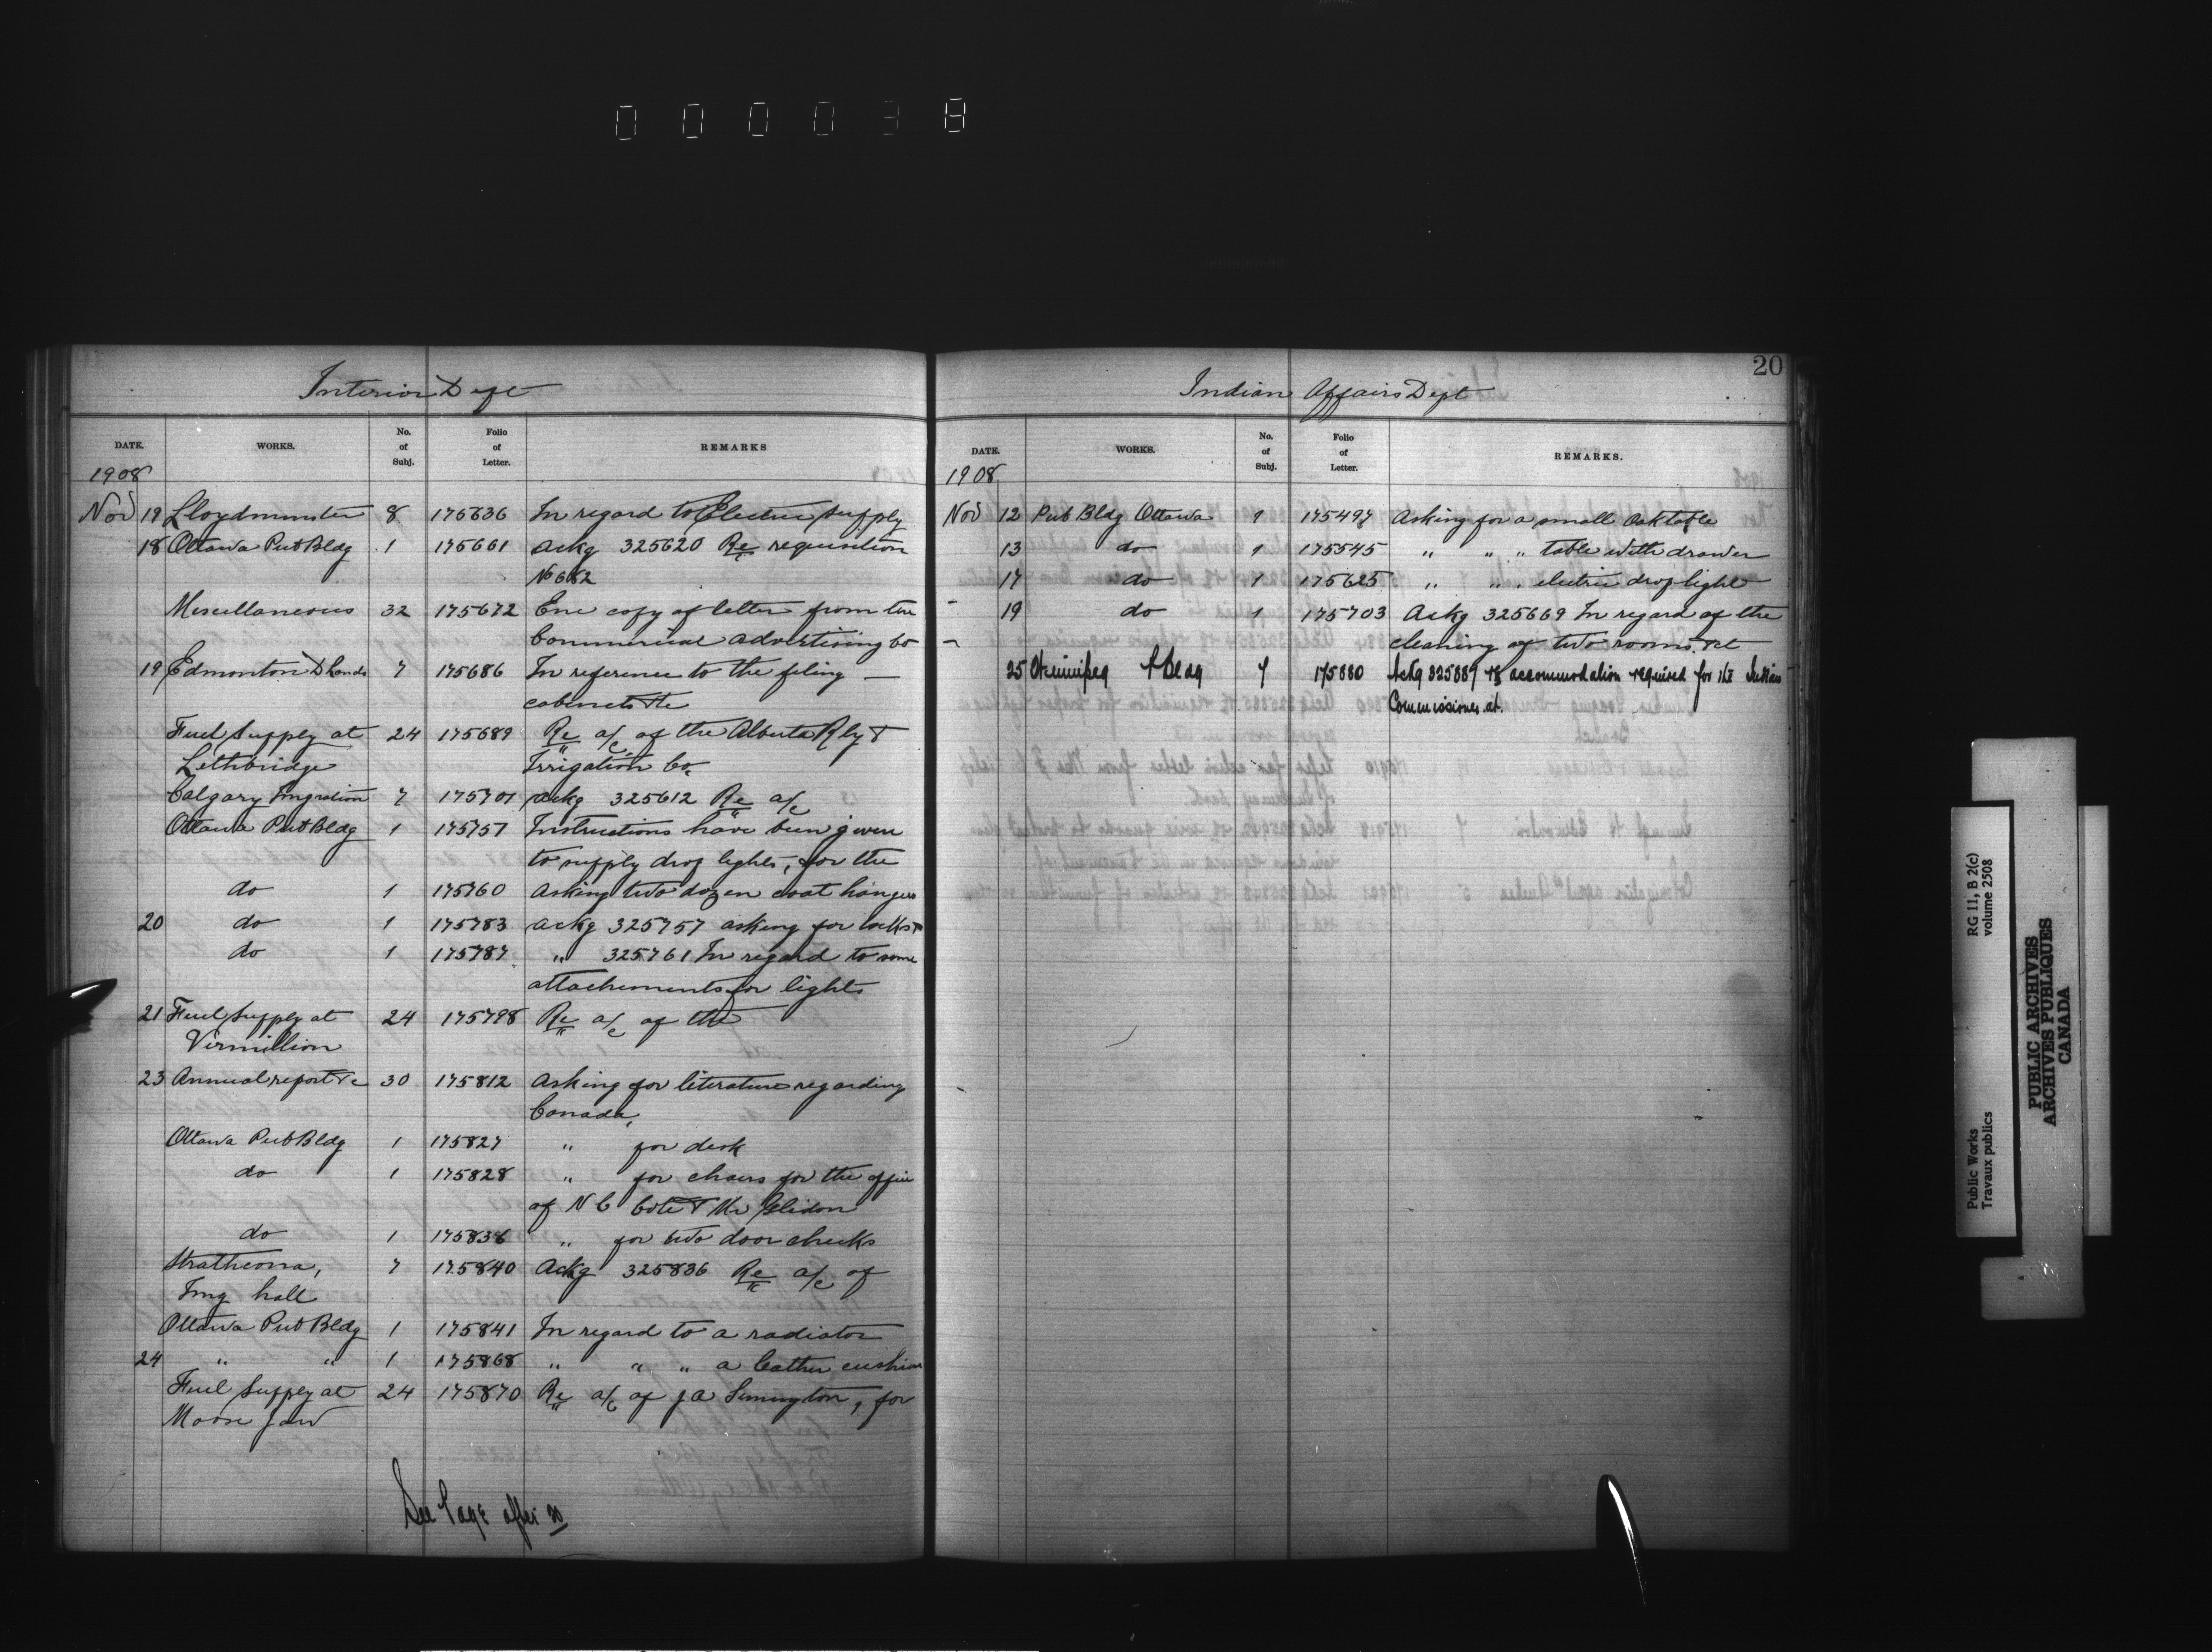 000038
Interior Dept
DATE. WORKS. No. of Subj. Folio of Letter. REMARKS
1908
Nov 19 Lloydminster 8 175636 In regard to Electric supply
18 Ottawa Pub Bldg 1 175661 Ackg 325620 Re requisition
No 682
Miscellaneous 32 175672 Enc copy of letter from the
Commercial Advertising Co
19 Edmonton D Lands 7 175686 In reference to the filing —
cabinets &c
Fuel Supply at 24 175689 Re a/c of the Alberta Rly &
Lethbridge Irrigation Co.
Calgary Imgration 7 175701 Ackg 325612 Re a/c
Ottawa Pub Bldg 1 175757 Instructions have been given
to supply drop lights, for the
do 1 175760 Asking two dozen coat hangers
20 do 1 175783 Ackg 325757 asking for locks
do 1 175787 " 325761 In regard to some
attachements for lights
21 Fuel Supply at 24 175798 Re a/c of the
Vermillion
23 Annual report &c 30 175812 Asking for literature regarding
Canada,
Ottawa Pub Bldg 1 175827 " for desk
do 1 175828 " for chairs for the office
of N C Cote & Mr
do 1 175836 " for two door checks
Strathcona, 7 175840 Ackg 325836 Re a/c of
Img hall
Ottawa Pub Bldg 1 175841 In regard to a radiator
24 " " 1 175868 " " " a leather cushion
Fuel Supply at 24 175870 Re a/c of J A , for
Moose Jaw
See Page after 20
20
Indian Affairs Dept
DATE. WORKS. No. of Subj. Folio of Letter. REMARKS.
1908
Nov 12 Pub Bldg Ottawa 1 175497 Asking for a small Oak table
13 do 1 175545 " " " table with drawer
17 do 1 175625 " " " electric drop light
19 do 1 175703 Ackg 325669 In regard of the
cleaning of two rooms &c
25 Winnipeg P Bldg 7 175880 Ackg 325887 re accommodation required for the Indian
Commissioner at.
Public Works
Travaux publics
RG 11, B 2(c)
volume 2508
PUBLIC ARCHIVES
ARCHIVES PUBLIQUES
CANADA